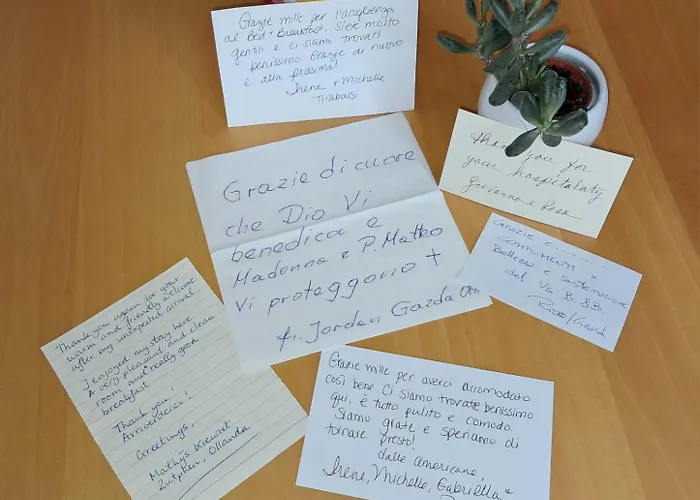 Grazie mille per l'accoglienza
al Bed + Breakfast. Siete molto
gentili e ci siamo trovati
benissimo. Grazie di nuovo
e alla prossima!
Irene + Michelle
Tirabassi
Thank you for
your hospitality
Giovanna e Rosa
Grazie di cuore
che Dio Vi
benedica e
Madonna e P. Matteo
Vi proteggono +
fr. Jordan Gazda
Grazie e........
complimenti x
Bellezza e sistemazione
del Vs B.&B.
Thank you again for your
warm and friendly welcome
after my unexpected arrival.
I enjoyed my stay here.
A very pleasant and clean
room and really good
breakfast
Thank you!
Arriverderci!
Greetings,
Mathijs
Zutphen, Ollanda
Grazie mille per averci accomodato
così bene Ci siamo trovate benissimo
qui, è tutto pulito e comodo.
Siamo grate e speriamo di
tornare presto!
dalle americane,
Irene, Michelle, Gabriella +